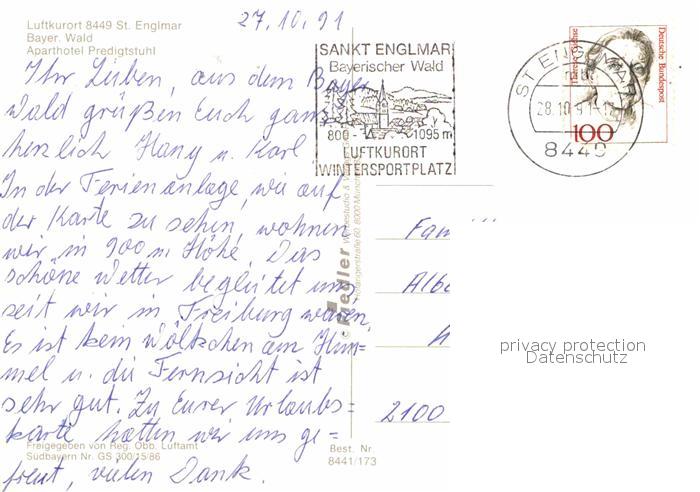 Luftkurort 8449 St. Englmar
Bayer. Wald
Aparthotel Predigtstuhl
27.10.91
Ihr Lieben, aus dem Bayer
wald grüßen Euch ganz
herzlich Hany u. Karl
In der Ferienanlage, wie auf
der Karte zu sehen, wohnen
wir in 900 m Höhe. Das
schöne Wetter begleitet uns
seit wir in Freiburg waren.
Es ist kein Wölkchen am Him=
mel u. die Fernsicht ist
sehr gut. Zu Eurer Urlaubs=
karte hatten wir uns ge=
freut, vielen Dank.
Freigegeben von Reg. Obb. Luftamt
Südbayern Nr. GS 300/15/86
SANKT ENGLMAR
Bayerischer Wald
800 - 1095 m
LUFTKURORT
WINTERSPORTPLATZ
ST ENGLMAR
28.10.91-12
8449
Deutsche Bundespost
100
Riedler
8000 München
Fam
Albe
2100
Best. Nr.
8441/173
privacy protection
Datenschutz